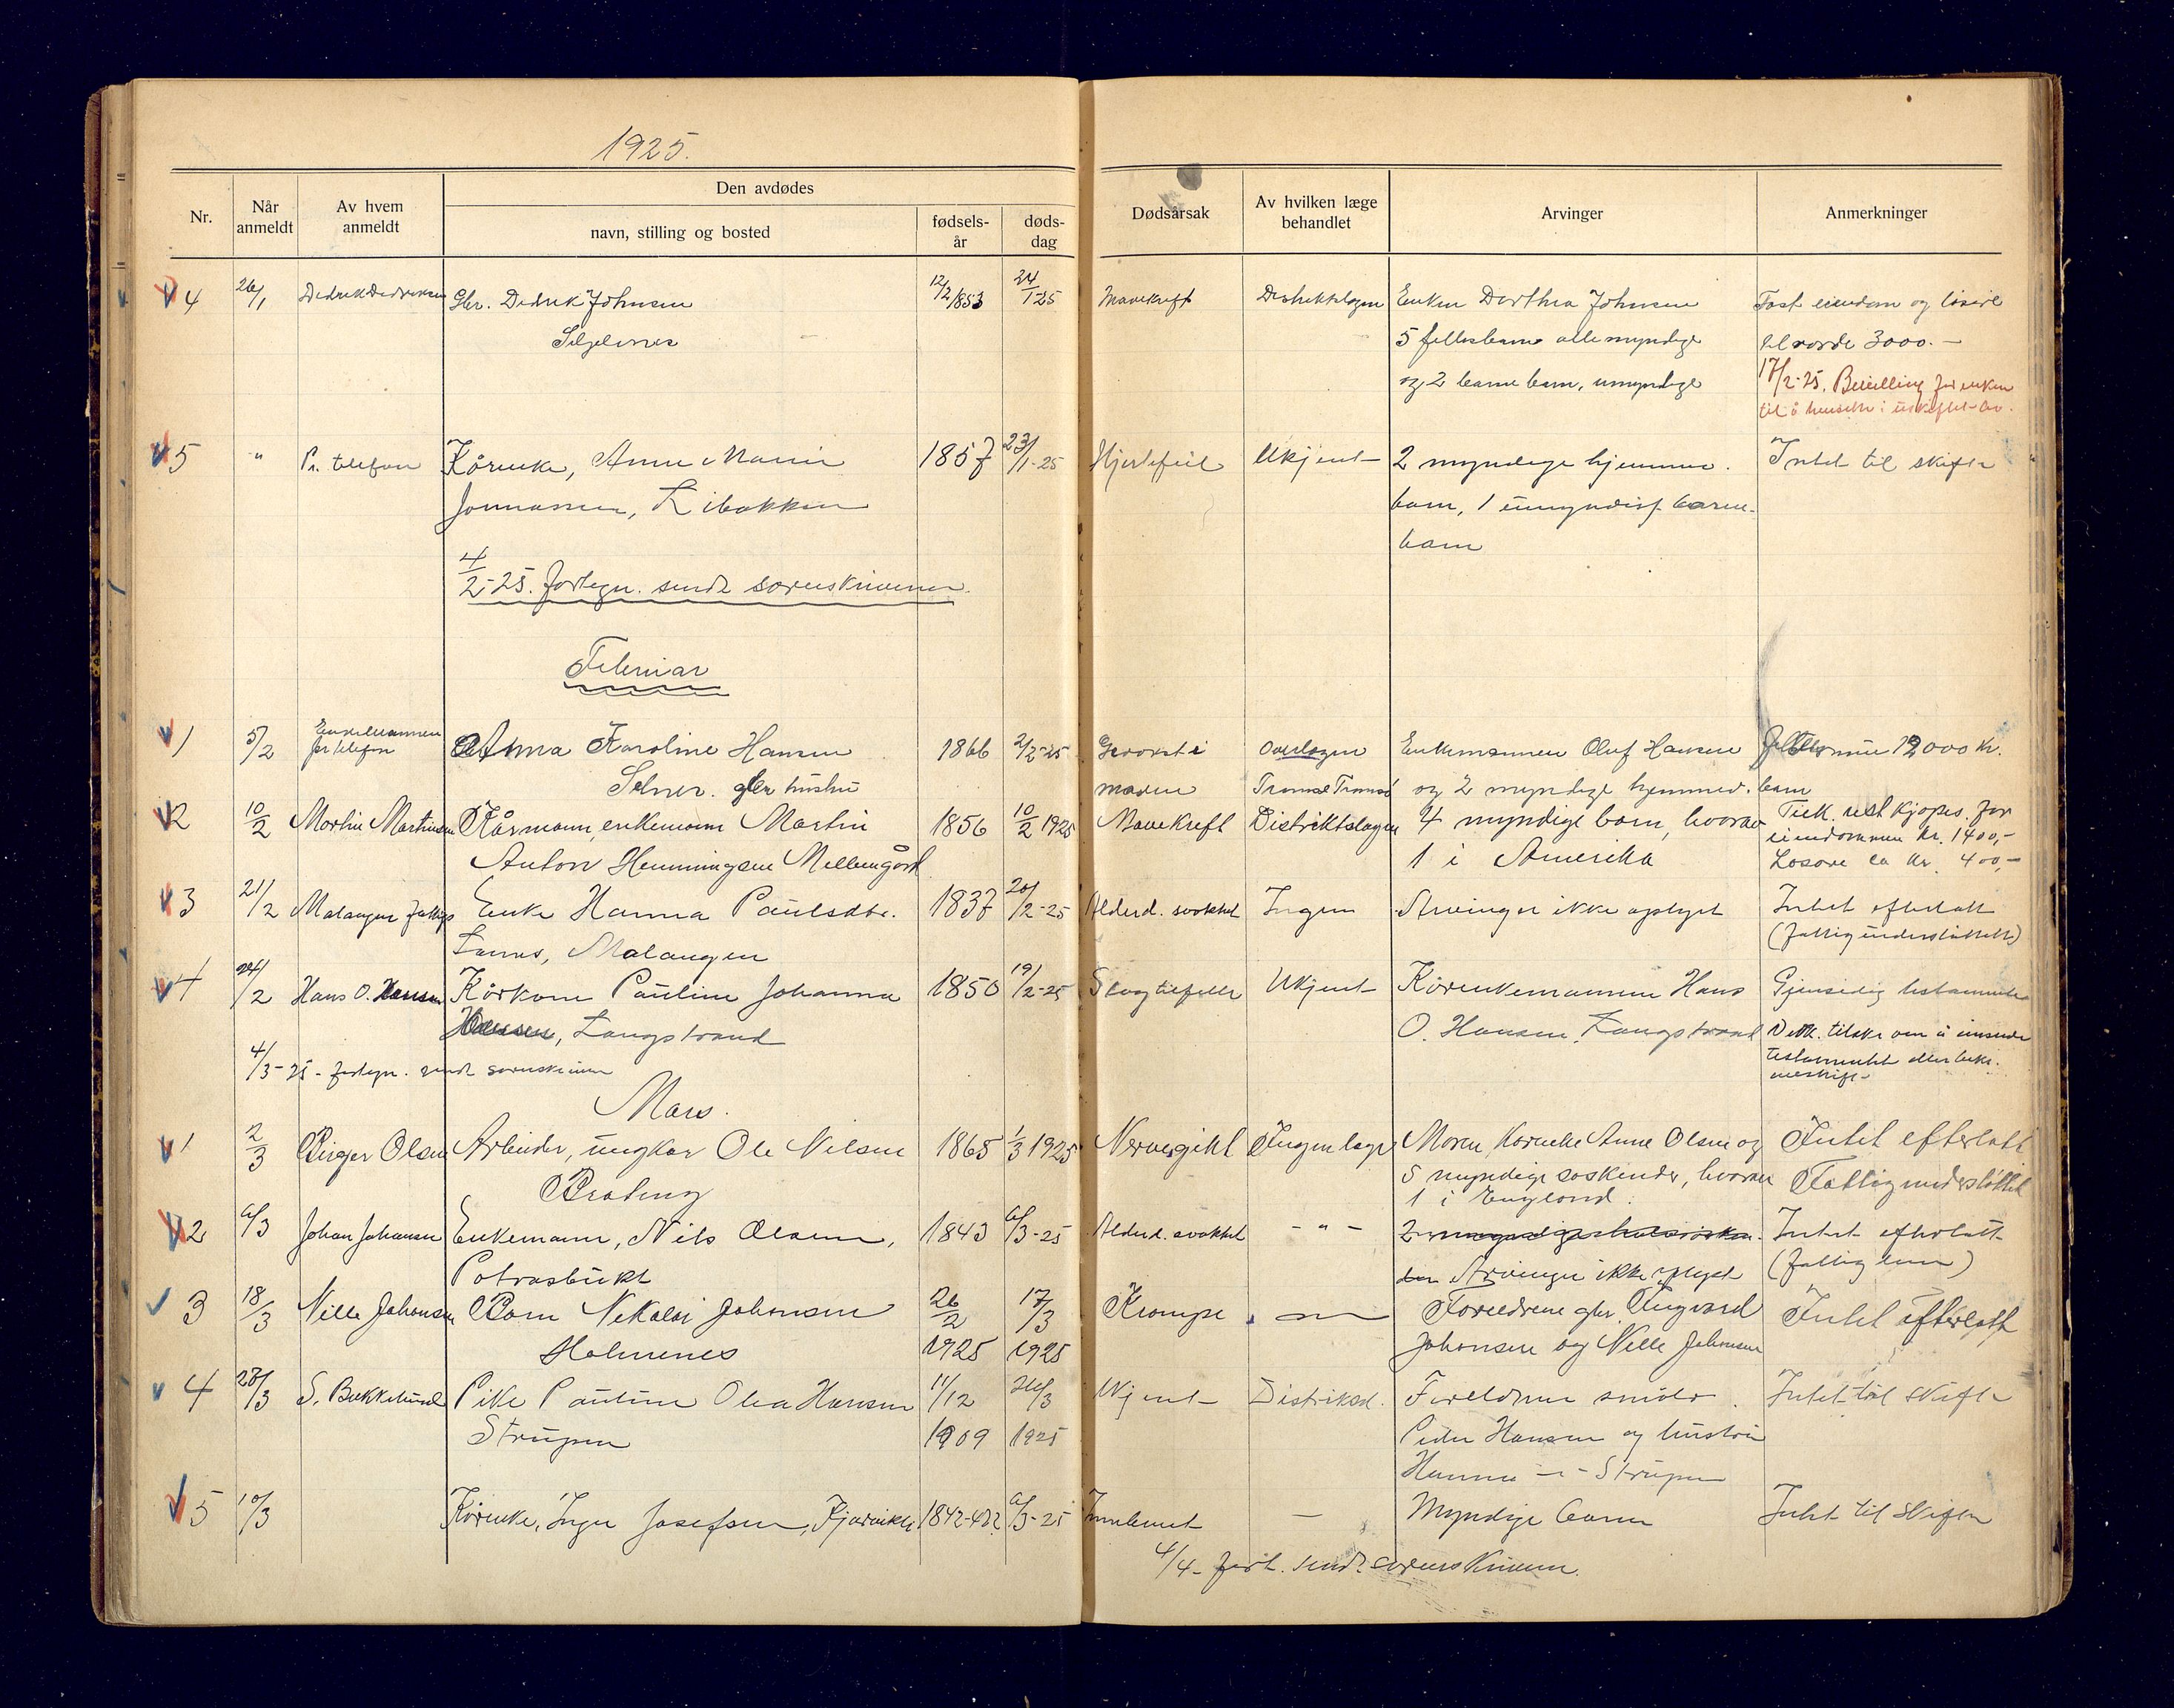 1925.
Nr.
Når anmeldt
Av hvem anmeldt
Den avdødes
navn, stilling og bosted
fødsels-år
døds-dag
Dødsårsak
Av hvilken læge behandlet
Arvinger
Anmerkninger
4 26/1 Dedrek Dedreksen Gbr. Dedrek Johnsen 12/2 1853 24/1 25 Mavekreft Distriktslægen Enken Dorthea Johnsen Fast eiendom og løsøre
5 fellesbarn alle myndige til værde 3000.-
og 2 barnebarn, umyndige 17/2-25. Bevilling for enken
til å hensitte i uskiftet bo.
5 " Pr. telefon Kårenke, Anne Marie 1857 23/1-25 Hjertefeil Ukjent 2 myndige hjemmev. Intet til skifte
barn, 1 umyndig barne-
barn
4/2-25. Fortegn. sendt sorenskriveren.
Februar
1 5/2 Enkemannen Anna Karoline Hansen 1866 2/2-25 Gevækst i Overlægen Enkemannen Oluf Hansen 12000 kr.
pr telefon
gbr hustru maven Tromsø og 2 myndige hjemmev. barn
2 10/2 Martin Martinsen Kårmann, enkemann Martin 1856 10/2 1925 Mavekreft Distriktslægen 4 myndige barn, hvorav
Anton Henningsen Mellemgård 1 i Amerika
eiendommen kr. 1400,-
Løsøre ca kr. 400,-
3 21/2 Malangen Enke Hanna Paulsdtr. 1837 20/2-25 Alderd. svakhet Ingen Arvinger ikke oplyst Intet efterlatt
Malangen (fattigunderstøttet)
4 24/2 Hans O. Hansen Kårkone Pauline Johanna 1850 19/2-25 Slagtilfelle Ukjent Kårenkemannen Hans Gjensidig testamente
Hansen, Langstrand O. Hansen, Langstrand tilskr om å innsende
testamentet eller bekr.
4/3-25 - fortegn. sendt sorenskriveren
Mars.
1 2/3 Birger Olsen Arbeider, ungkar Ole Nilsen 1865 1/3 1925 Nervegikt Ingen læge Moren, kårenke Anne Olsen og Intet efterlatt
5 myndige søskender, hvorav Fattigunderstøttet
1 i England.
2 6/3 Johan Johansen Enkemann, Nils Olsen, 1843 6/3-25 Alderd. svakhet - " - 2 Intet efterlatt
Arvinger ikke oplyst (fattiglem)
3 18/3 Nille Johansen Barn Nikolai Johansen 26/2 17/3 Krampe Foreldrene gbr. Ingvard Intet efterlatt
Holmenes 1925 1925 Johansen og Nille Johansen
4 28/3 S. Bakkelund Pike Pauline Olea Hansen 11/12 26/3 Ukjent Distriksl. Foreldrene småbr. Intet til skifte
Strupen 1909 1925 Peder Hansen og hustru
Hanna -"- Strupen
5 10/3 Kårenke, Inger Josefsen, 1842-43? 6/3-25 — Myndige barn Intet til skifte
4/4- fort. sendt sorenskriveren.